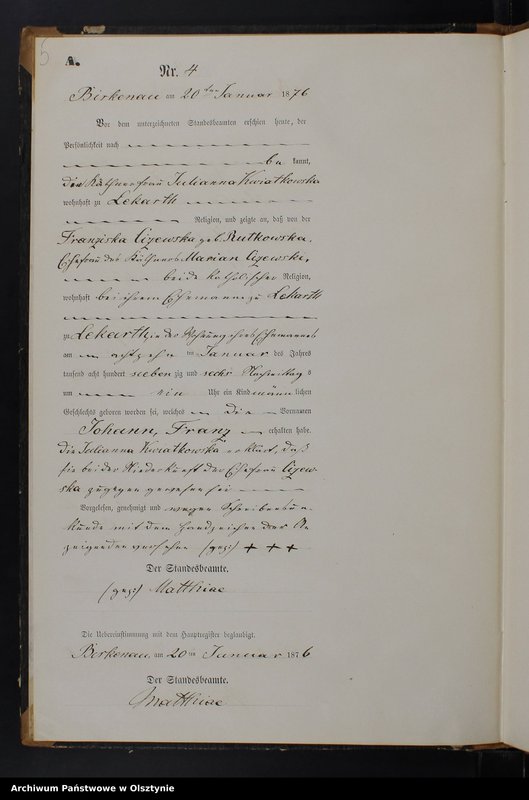 5
A.
Nr. 4
Birkenau am 20ten Januar 1876
Vor dem unterzeichneten Standesbeamten erschien heute, der
Persönlichkeit nach
be kannt,
die Käthnerfrau Julianna Kwiatkowska
wohnhaft zu Lekarth
Religion, und zeigte an, daß von der
Franziska Cizewska geb. Rutkowska,
Ehefrau des Käthners Marian Cizewski,
beide katholischer Religion,
wohnhaft bei ihrem Ehemanne zu Lekarth
zu Lekarth in der Wohnung ihres Ehemannes
am achtzehn ten Januar des Jahres
tausend acht hundert sieben zig und sechs Nachmittag s
um ein Uhr ein Kind männ lichen
Geschlechts geboren worden sei, welches die Vornamen
Johann, Franz erhalten habe.
Die Julianna Kwiatkowska erklärt, daß
sie bei der Niederkunft der Ehefrau Cizew-
ska zugegen gewesen sei
Vorgelesen, genehmigt und wegen Schreibensun-
kunde mit dem Handzeichen der An
zeigenden versehen (gez:) + + +
Der Standesbeamte.
(gez:) Matthiae
Die Uebereinstimmung mit dem Hauptregister beglaubigt.
Birkenau am 20 ten Januar 1876
Der Standesbeamte.
Matthiae
Archiwum Państwowe w Olsztynie